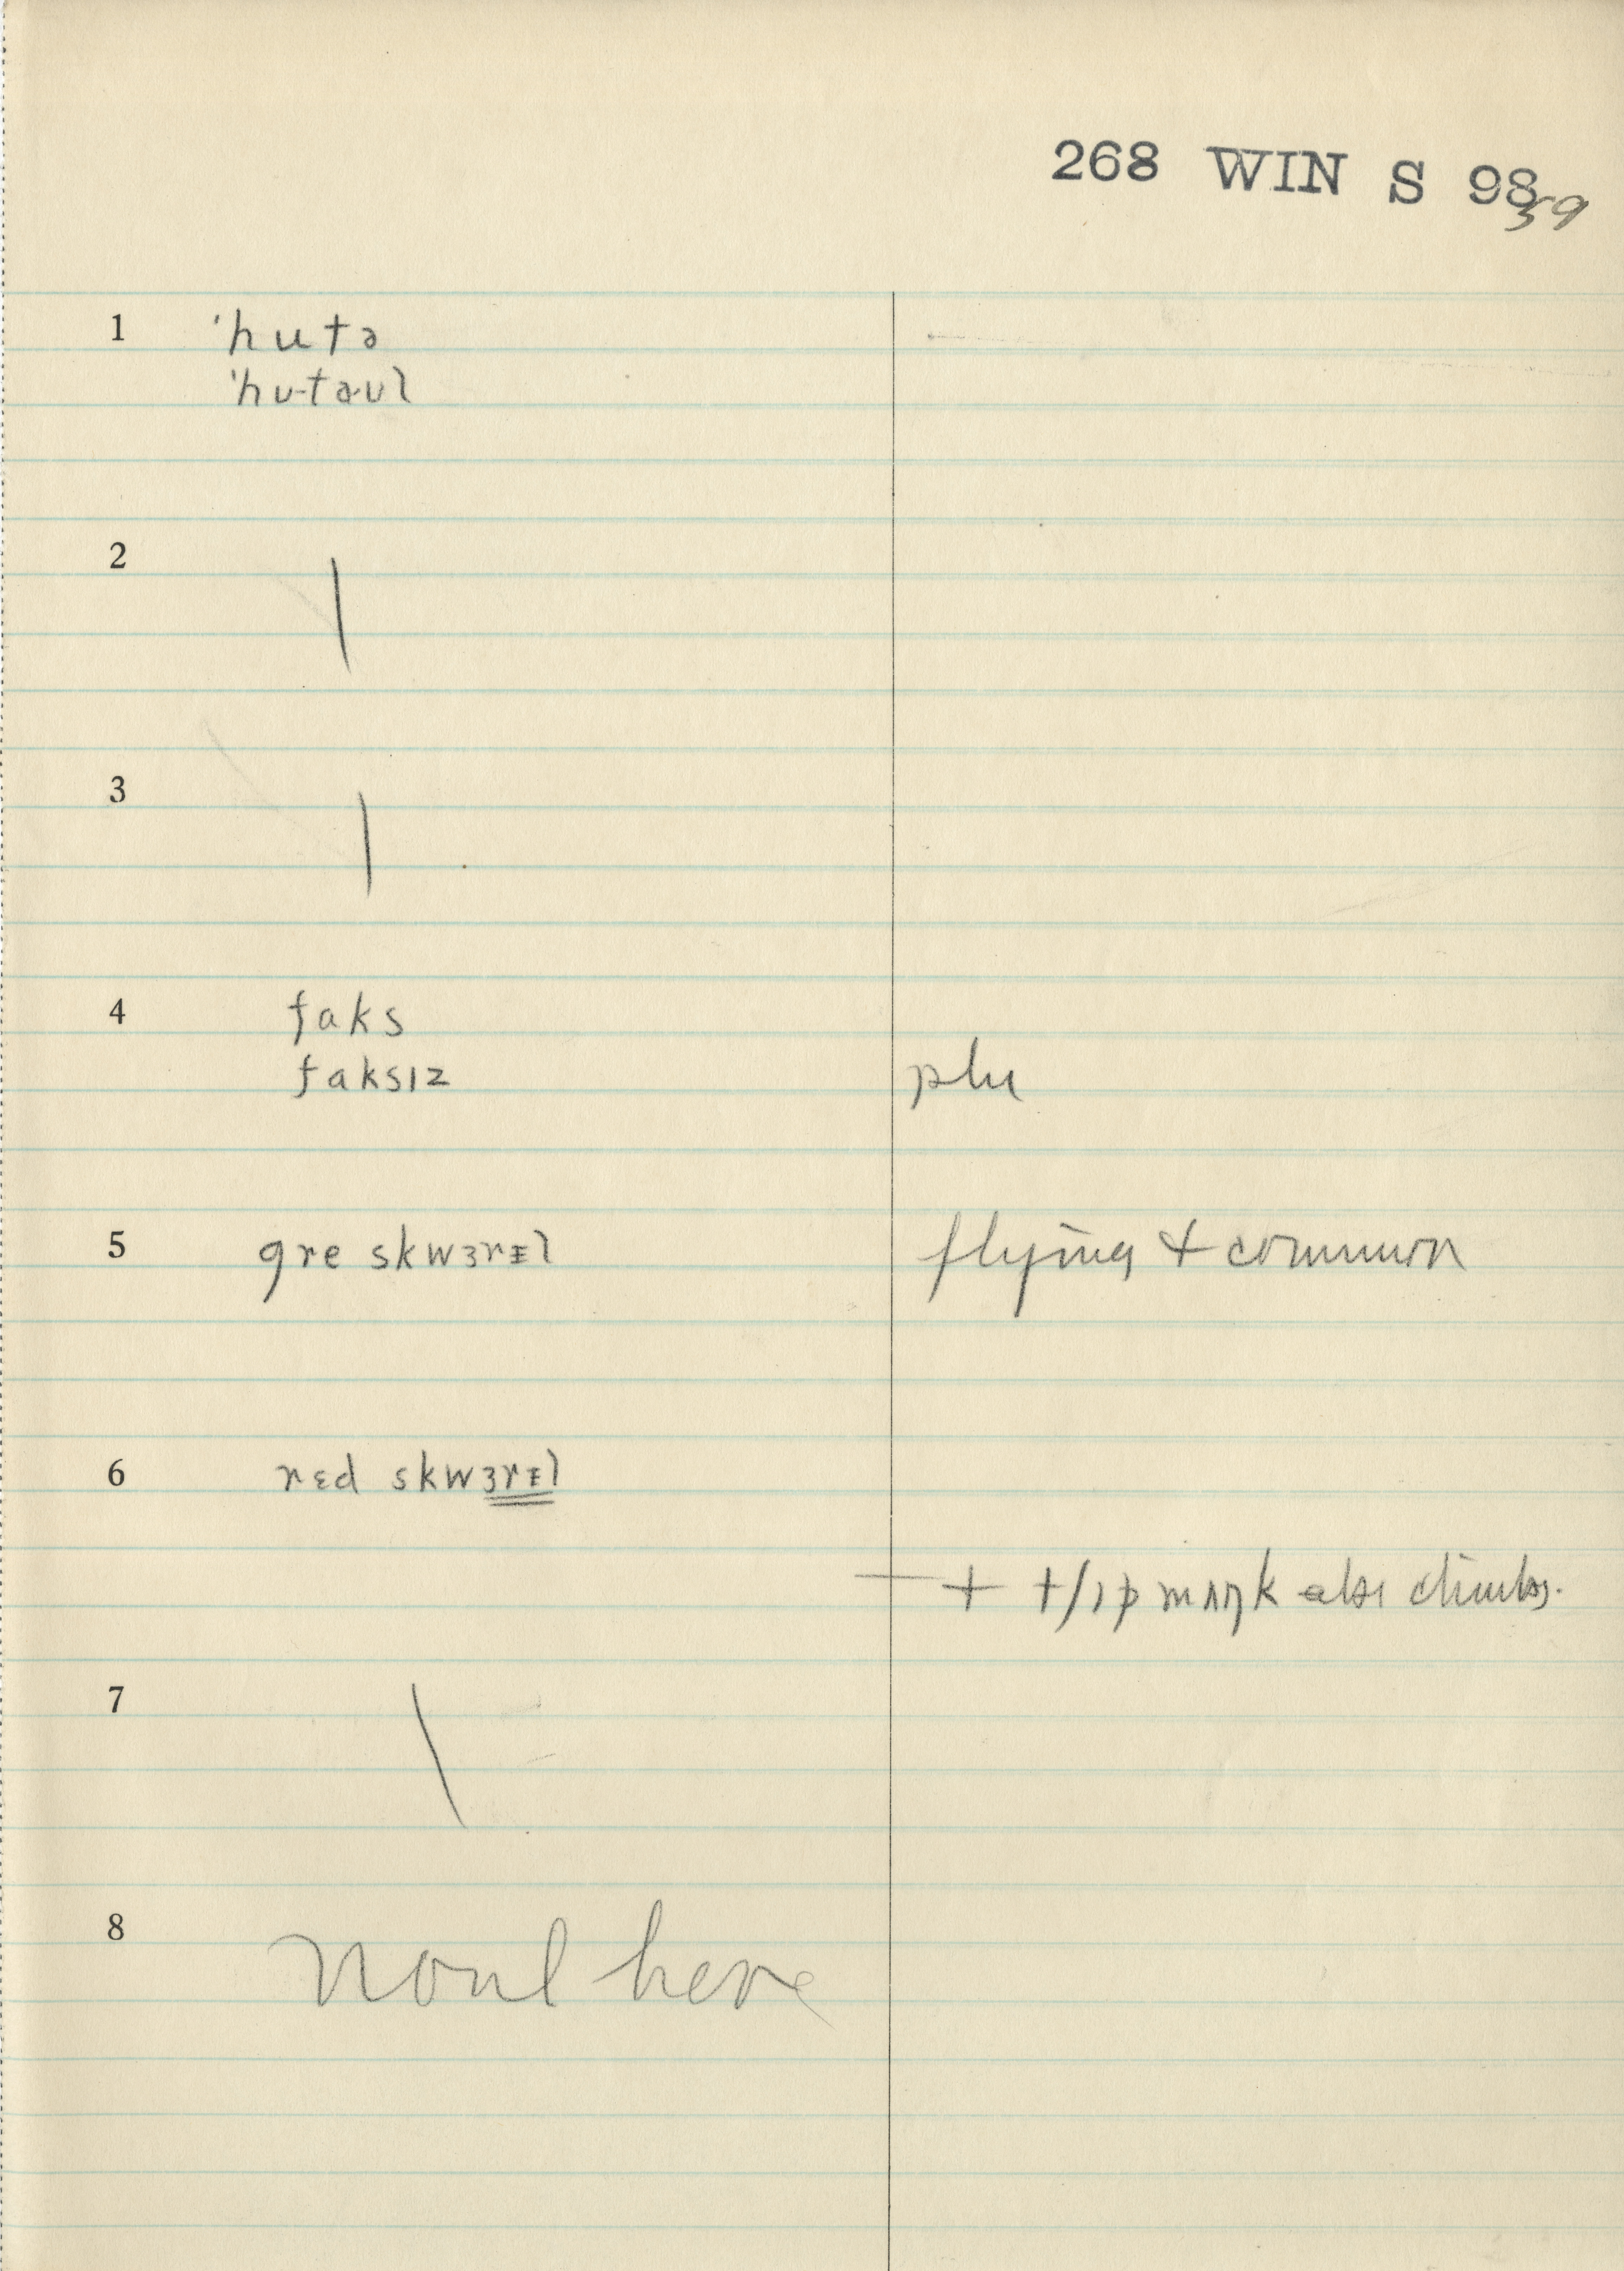 268 WIN S 98
59
1 'hutə
'hu-ta·ul
2
3
4 faks
faksɪz
plu
5 gre skwɜrᵻl flying & common
6 rɛd skwɜrᵻl
+ tʃɪpmʌŋk also climbs.
7
8 here